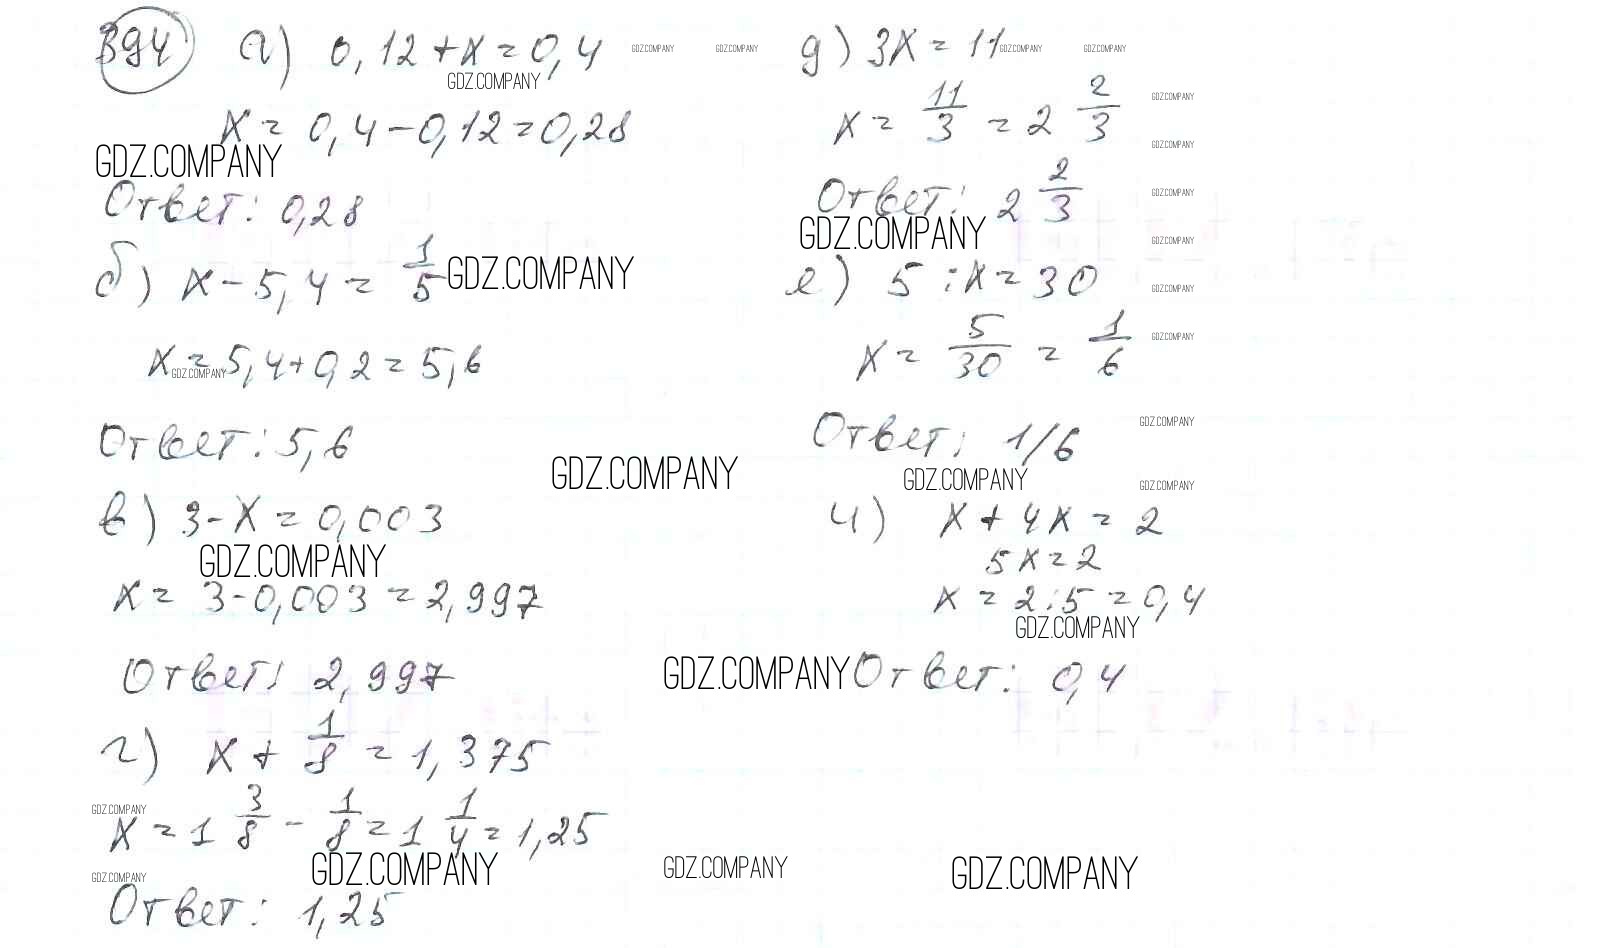 394 а) 0,12+x=0,4
GDZ.COMPANY
x=0,4-0,12=0,28
GDZ.COMPANY
Ответ: 0,28
б) x-5,4=1/5
GDZ.COMPANY
x=5,4+0,2=5,6
GDZ.COMPANY
Ответ: 5,6
GDZ.COMPANY
в) 3-x=0,003
GDZ.COMPANY
x=3-0,003=2,997
Ответ: 2,997
GDZ.COMPANY
г) x+1/8=1,375
GDZ.COMPANY
x=1 3/8-1/8=1 1/4=1,25
GDZ.COMPANY
GDZ.COMPANY
GDZ.COMPANY
Ответ: 1,25
GDZ.COMPANY GDZ.COMPANY
д) 3x=11
GDZ.COMPANY GDZ.COMPANY
GDZ.COMPANY
x=11/3=2 2/3
GDZ.COMPANY
Ответ: 2 2/3
GDZ.COMPANY
GDZ.COMPANY
GDZ.COMPANY
е) 5:x=30
GDZ.COMPANY
x=5/30=1/6
GDZ.COMPANY
Ответ: 1/6
GDZ.COMPANY
GDZ.COMPANY
GDZ.COMPANY
и) x+4x=2
5x=2
x=2:5=0,4
GDZ.COMPANY
Ответ: 0,4
GDZ.COMPANY